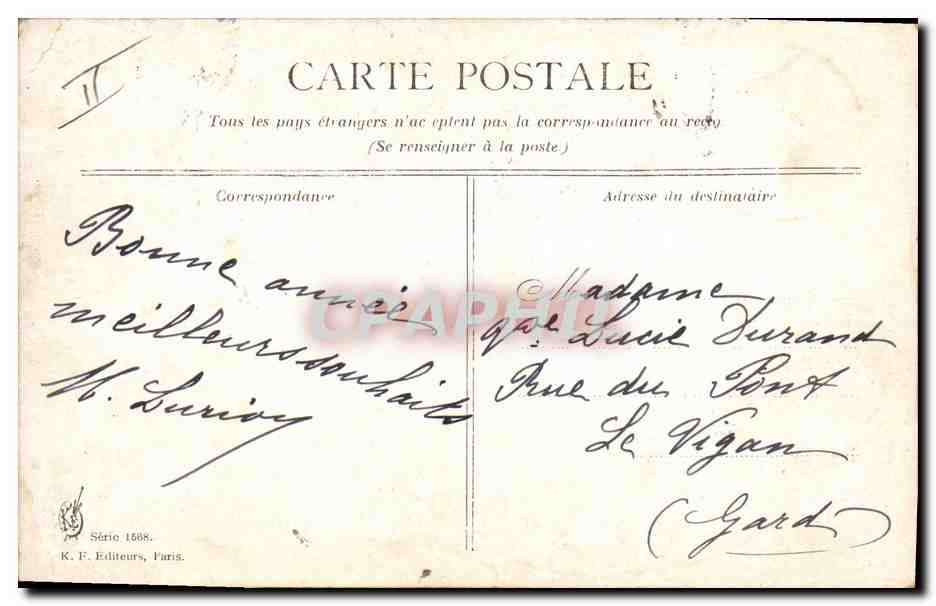 II
CARTE POSTALE
Tous les pays étrangers n'acceptent pas la correspondance au recto
(Se renseigner à la poste)
Correspondance
Adresse du destinataire
Bonne année
meilleurs souhaits
CPAPHIL
Madame
Lucie Durand
Rue du Pont
Le Vigan
(Gard)
Série 1568.
K. F. Editeurs, Paris.